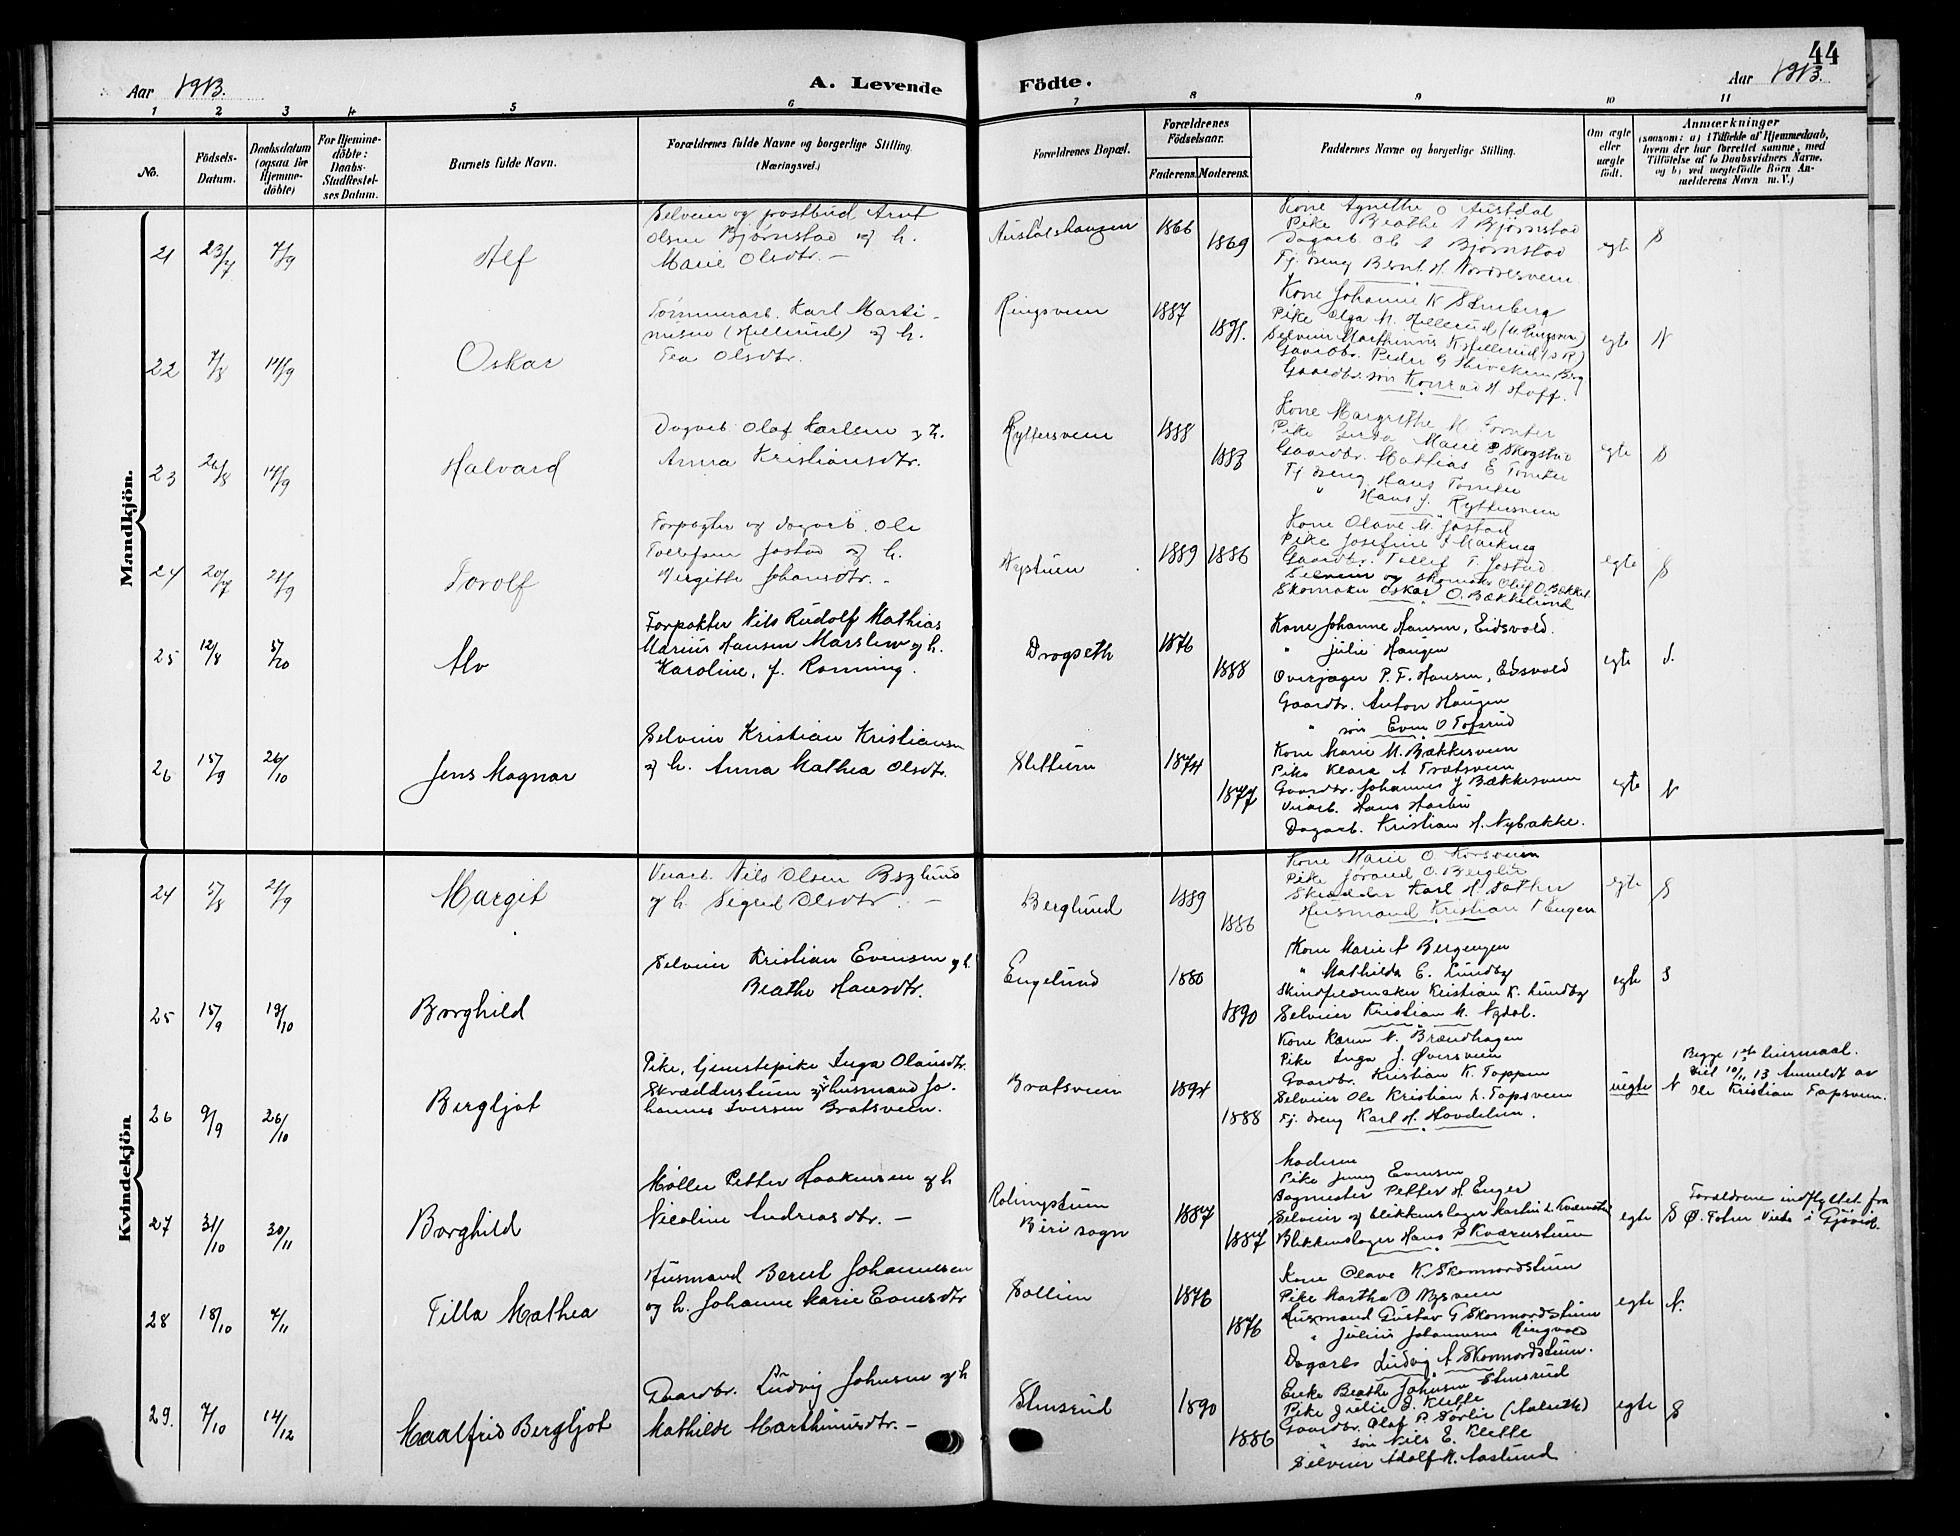 44
Aar 1913.
A. Levende
Födte.
Aar 1913.
1 2 3 4 5 6 7 8 9 10 11
No.
Födsels-
Datum.
Daabsdatum
(ogsaa for
Hjemme-
döbte)
For Hjemme-
döbte:
Daabs-
Stadfæstel-
ses Datum.
Barnets fulde Navn.
Forældrenes fulde Navne og borgerlige Stilling.
(Næringsvei.)
Forældrenes Bopæl.
Forældrenes
Födselsaar.
Faderens. Moderens.
Faddernes Navne og borgerlige Stilling.
Om ægte
eller
uægte
født.
Anmærkninger
(saasom: a) i Tilfælde af Hjemmedaab,
hvem der har forrettet samme, med
Tilföielse af to Daabsvidners Navne,
og b) ved uægtefödte Börn An-
melderens Navn m. V.)
Mandkjön.
21 23/7 7/9 Alf
Selveier og postbud Arnt
Olsen Bjørnstad og h.
Marie Olsdtr. —
1866 1869
Kone Agnethe O Austdal
Pike Beathe A Bjørnstad
Dagarb. Ole A Bjørnstad
Tj. dreng Bernt H.
egte S
22 7/8 14/9 Oskar
Tømmerarb. Karl Marti-
nisen (Hillerud) og h.
Tea Olsdtr.
Ringsveen 1887 1891.
Kone Johanne K Stenberg
Pike Olga M. Hillerud
Selveier Marthinius K Hillerud
Gaardbr. Peder G
Gaardbr. søn Konrad H. Hoff.
egte N
23 26/8 14/9 Halvard
Dagarb. Olaf Karlsen og h.
Anna Kristiansdtr.
Ryttersveen 1888 1883
Kone Margrethe M Tomter
Pike Marie P Skogstad
Gaardbr. Mathias E Tomter
Tj dreng Hans Tomter
" Hans J. Ryttersveen
egte S
24 20/7 21/9 Torolf
Forpagter og dagarb. Ole
Tollefsen Jostad og h.
Birgitte Johansdtr. -
Nystuen 1889 1886
Kone Olave M. Jostad
Pike Josefine
Gaardbr. Tollef T. Jostad
Selveier og skomaker Olaf O. Bækkel.
Skomaker Oskar O. Bækkelund
egte S
25 12/8 5/10 Alv
Forpakter Nils Rudolf Mathias
Marius Hansen Marslew og h.
Karoline, f. Rønning.
Drogseth 1876 1888
Kone Johanne Hansen, Eidsvold.
" Julie Haugen
Overjæger P. F. Hansen, Eidsvold
Gaardbr. Anton Haugen
" søn Even O Tofsrud
egte S.
26 15/9 26/10 Jens Magnar
Selveier Kristian Kristiansen
og h. Anna Mathea Olsdtr.
Slettum 1874 1877
Kone Marie M. Bækkesveen
Pike Klara A Bratsveen
Gaardbr. Johannes J Bækkesveen
Veiarb. Hans
Dagarb. Kristian H. Nybakke.
egte N
Kvindekjön
24 5/8 21/9 Margit
Veiarb. Nils Olsen Berglund
og h. Sigrid Olsdtr. —
Berglund 1889 1886
Kone Marie O Korsveen
Pike Jørand O. Berglie
Skrædder Karl H. Sæther
Husmand Kristian A Engen
egte S
25 15/9 19/10 Borghild
Selveier Kristian Evensen og h.
Beathe Hansdtr.
Engelund 1880 1890
Kone Marie A Bergengen
" Mathilde E. Lundby
Skindfeldmaker Kristian K. Lundby
Selveier Kristian M. Nydal.
egte S
26 9/9 26/10 Bergljot
Pike, tjenestepike Inga Olausdtr.
Skrædderstuen og husmand Jo-
hannes Iversen Bratsveen.
Bratsveen 1894 1888
Kone Karen N. Brændhagen
Pike Inga J. Øversveen
Gaardbr. Kristian K. Toppen
Selveier Ole Kristian L. Topsveen
Tj. dreng Karl H. Hovdelien.
uegte N
Begge 1ste leiermaal.
10/11 13 Anmeldt av
Ole Kristian Topsveen.
27 31/10 30/11 Borghild
Møller Petter Haakensen og h
Nicoline Andreasdtr. —
Biri sogn 1887 1887
Moderen
Pike Jenny Evensen
Bagmester Petter H. Enger
Selveier og blikkenslager Martin L. Kværnstuen
Blikkenslager Hans P Kværnstuen
egte S
Forældrene indflyttet fra
Ø. Toten Viede i Gjøvik.
28 18/10 7/11 Tilla Mathea
Husmand Bernt Johannesen
og h. Johanne Marie Evensdtr
Sollien 1876 1876
Kone Olave K. Skomordstuen
Pike Martha O Nysveen
Husmand Gustav G Skomordstuen
" Julius Johannesen Ringvold
Dagarb Ludvig A Skomordstuen.
egte N.
29. 7/10 14/12 Maalfrid Bergljot
Gaardbr. Ludvig Johnsen og h
Mathilde Marthinusdtr. —
Stensrud 1890 1886
Enke Beathe Johnsen Stensrud
Pike Julie E. Klette
Gaardbr. Olaf P. Sorlie
" søn Nils E. Klette
Selveier Adolf M. Aaslund
egte S